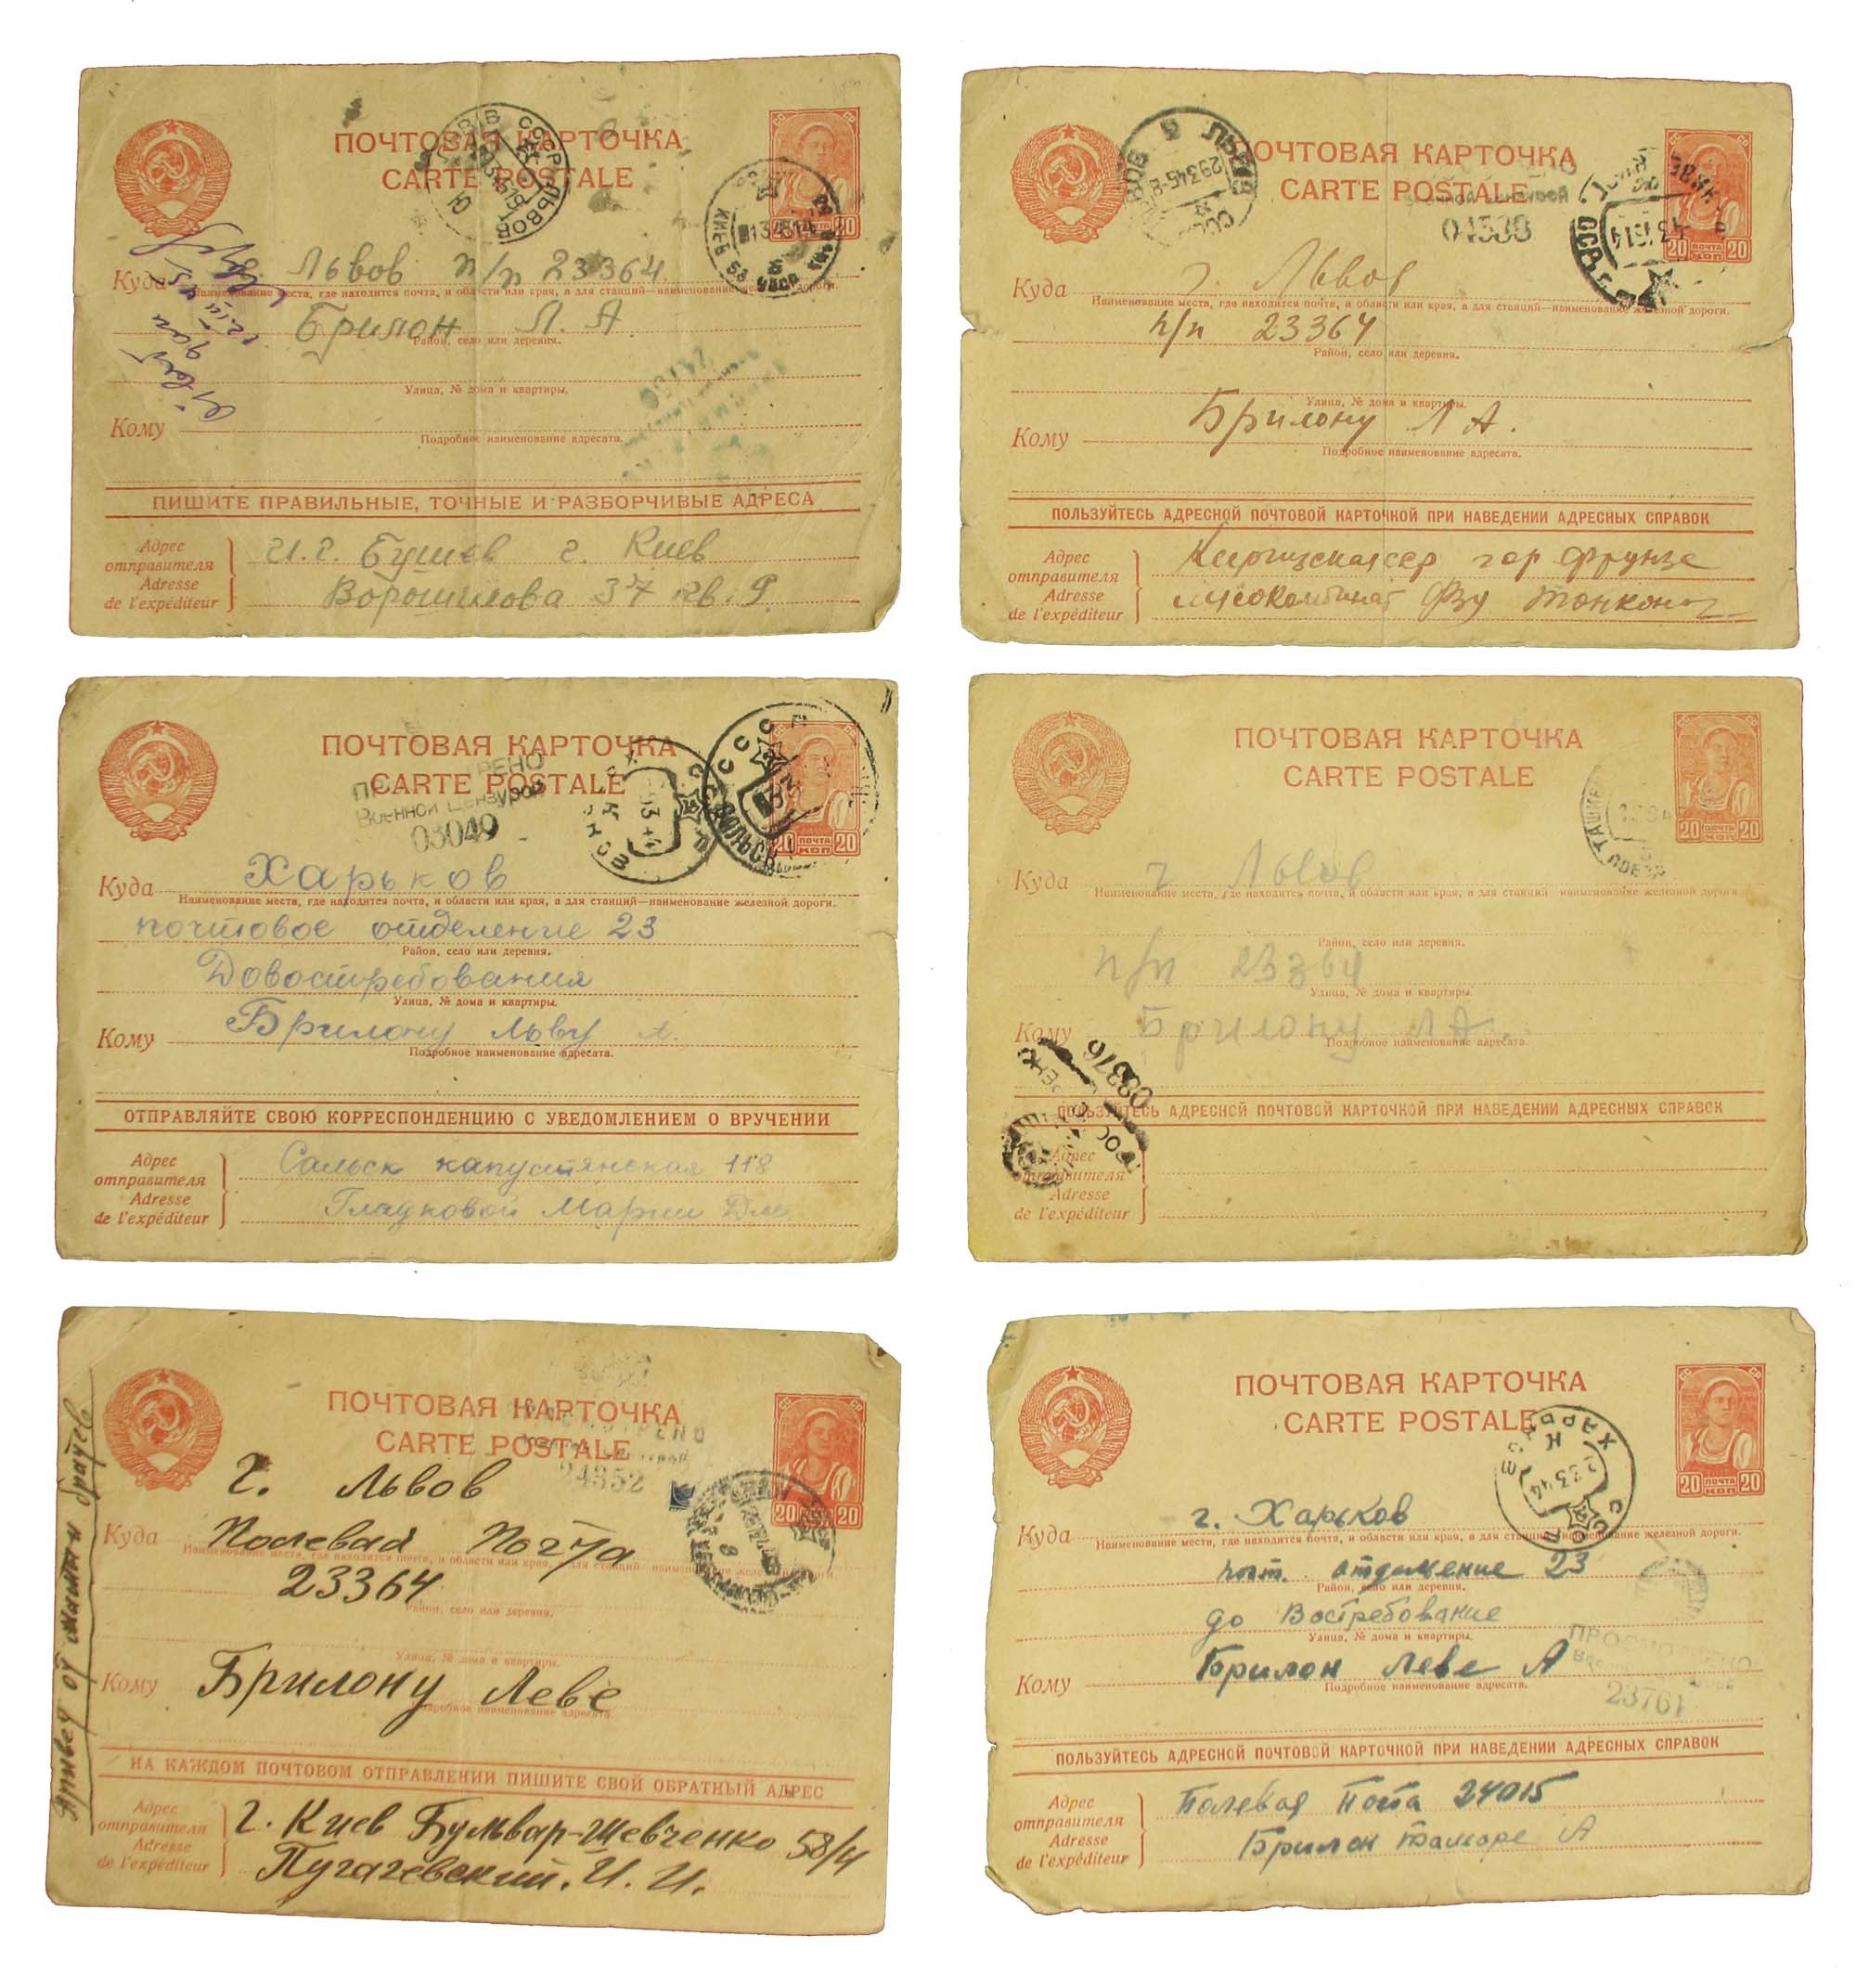 ПОЧТОВАЯ КАРТОЧКА
CARTE POSTALE
СССР ЛЬВОВ
КИЕВ
20 20
Куда Львов п/п 23364
Наименование места, где находится почта, и области или края, а для станций—наименование железной дороги.
Брилон Л. А
Район, село или деревня.
Улица, № дома и квартиры.
Кому
Подробное наименование адресата.
ПИШИТЕ ПРАВИЛЬНЫЕ, ТОЧНЫЕ И РАЗБОРЧИВЫЕ АДРЕСА
Адрес
отправителя
Adresse
de l'expéditeur
И. г. Бушев г. Киев
Ворошилова 37 кв. 9.
ПОЧТОВАЯ КАРТОЧКА
CARTE POSTALE
ЛЬВОВ
29345-8
военной цензурой
04538
20 ПОЧТА КОП 20
Куда г. Львов
Наименование места, где находится почта, и области или края, а для станций—наименование железной дороги.
п/п 23364
Район, село или деревня.
Улица, № дома и квартиры.
Кому Брилону Л А.
Подробное наименование адресата.
ПОЛЬЗУЙТЕСЬ АДРЕСНОЙ ПОЧТОВОЙ КАРТОЧКОЙ ПРИ НАВЕДЕНИИ АДРЕСНЫХ СПРАВОК
Адрес
отправителя
Adresse
de l'expéditeur
гор Фрунзе
мясокомбинат Фзу
ПОЧТОВАЯ КАРТОЧКА
CARTE POSTALE
Военной Цензурой
03049
20 ПОЧТА КОП 20
Куда Харьков
Наименование места, где находится почта, и области или края, а для станций—наименование железной дороги.
почтовое отделение 23
Район, село или деревня.
Довостребования
Улица, № дома и квартиры.
Кому Брилону Льву А.
Подробное наименование адресата.
ОТПРАВЛЯЙТЕ СВОЮ КОРРЕСПОНДЕНЦИЮ С УВЕДОМЛЕНИЕМ О ВРУЧЕНИИ
Адрес
отправителя
Adresse
de l'expéditeur
Сальск капустянская 118
Гладковой Марии Дм.
ПОЧТОВАЯ КАРТОЧКА
CARTE POSTALE
20 ПОЧТА КОП 20
Куда г Львов
Наименование места, где находится почта, и области или края, а для станций—наименование железной дороги
Район, село или деревня.
п/п 23364
Улица, № дома и квартиры.
Кому Брилону Л А.
Подробное наименование адресата.
08376
ПОЛЬЗУЙТЕСЬ АДРЕСНОЙ ПОЧТОВОЙ КАРТОЧКОЙ ПРИ НАВЕДЕНИИ АДРЕСНЫХ СПРАВОК
Адрес
отправителя
Adresse
de l'expéditeur
ПОЧТОВАЯ КАРТОЧКА
CARTE POSTALE
24352
20 ПОЧТА КОП 20
г. Львов
Куда Полевая Почта
Наименование места, где находится почта, и области или края, а для станций—наименование железной дороги.
23364
Район, село или деревня.
Улица, № дома и квартиры.
Кому Брилону Леве
Подробное наименование адресата.
НА КАЖДОМ ПОЧТОВОМ ОТПРАВЛЕНИИ ПИШИТЕ СВОЙ ОБРАТНЫЙ АДРЕС
Адрес
отправителя
Adresse
de l'expéditeur
г. Киев Бульвар-Шевченко 58/4
Пугачевский. И. И.
Привет от мамы и братьев
ПОЧТОВАЯ КАРТОЧКА
CARTE POSTALE
ХАРЬКОВ
20 ПОЧТА КОП 20
Куда г. Харьков
Наименование места, где находится почта, и области или края, а для станций—наименование железной дороги.
почт. отделение 23
Район, село или деревня.
до Востребование
Улица, № дома и квартиры.
ПРОСМОТРЕНО
23761
Кому Брилон Леве А
Подробное наименование адресата.
ПОЛЬЗУЙТЕСЬ АДРЕСНОЙ ПОЧТОВОЙ КАРТОЧКОЙ ПРИ НАВЕДЕНИИ АДРЕСНЫХ СПРАВОК
Адрес
отправителя
Adresse
de l'expéditeur
Полевая Почта 24015
Брилон Тамаре А